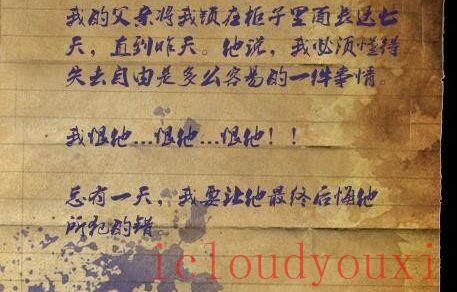 我的父亲将我锁在柜子里面长达七
天，直到昨天。他说，我必须懂得
失去自由是多么容易的一件事情。
我恨他...恨他...恨他！！
总有一天，我要让他最终后悔他
所犯的错
icloudyouxi